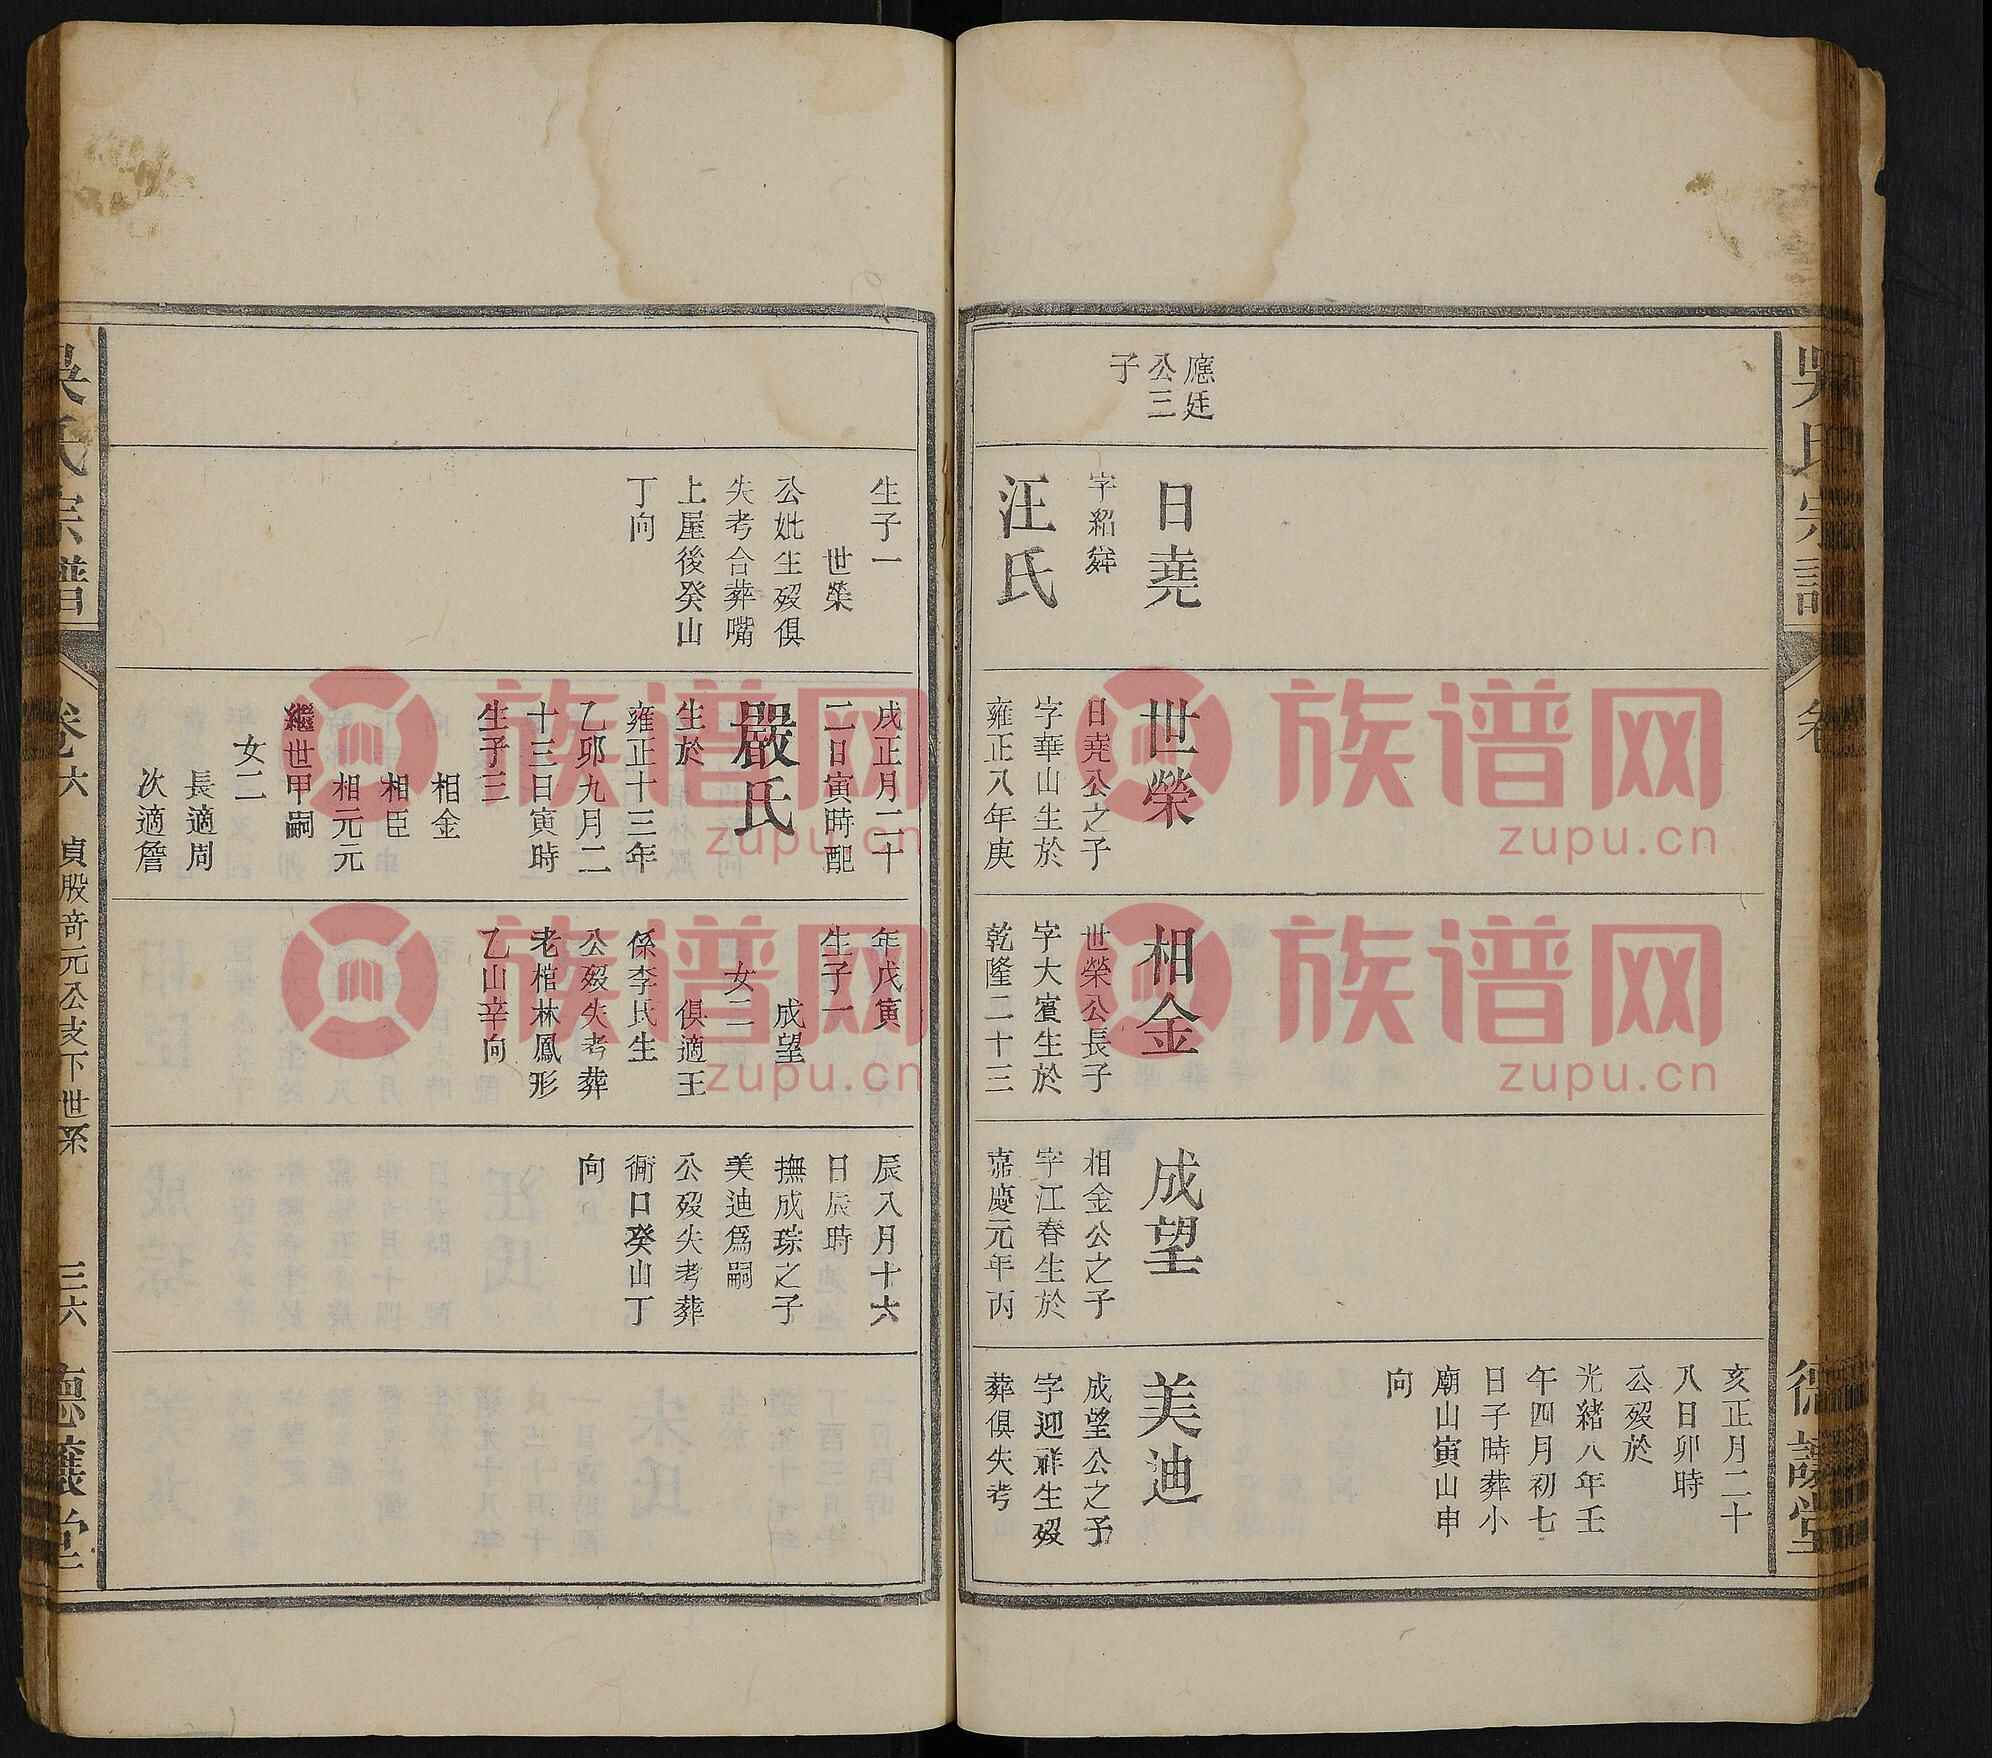 吳氏宗譜
卷
德讓堂
應廷
公三
子
日堯
字紹舜
汪氏
世榮
日堯公之子
字華山生於
雍正八年庚
相金
世榮公長子
字大賓生於
乾隆二十三
成望
相金公之子
字江春生於
嘉慶元年丙
亥正月二十
八日卯時
公歿於
光緒八年壬
午四月初七
日子時葬小
廟山寅山申
向
美迪
成望公之子
字迎祥生歿
葬俱失考
生子一
世榮
公妣生歿俱
失考合葬嘴
上屋後癸山
丁向
戌正月二十
二日寅時配
嚴氏
生於
雍正十三年
乙卯九月二
十三日寅時
生子三
相金
相臣
相元元
繼世甲嗣
女二
長適周
次適詹
年戊寅
生子一
成望
女二
俱適王
係李氏生
公歿失考葬
老棺林鳳形
乙山辛向
辰八月十六
日辰時
撫成琮之子
美迪爲嗣
公歿失考葬
衕口癸山丁
向
吳氏宗譜
卷六
貞股奇元公支下世系
三六
德讓堂
族谱网
zupu.cn
族谱网
zupu.cn
族谱网
zupu.cn
族谱网
zupu.cn